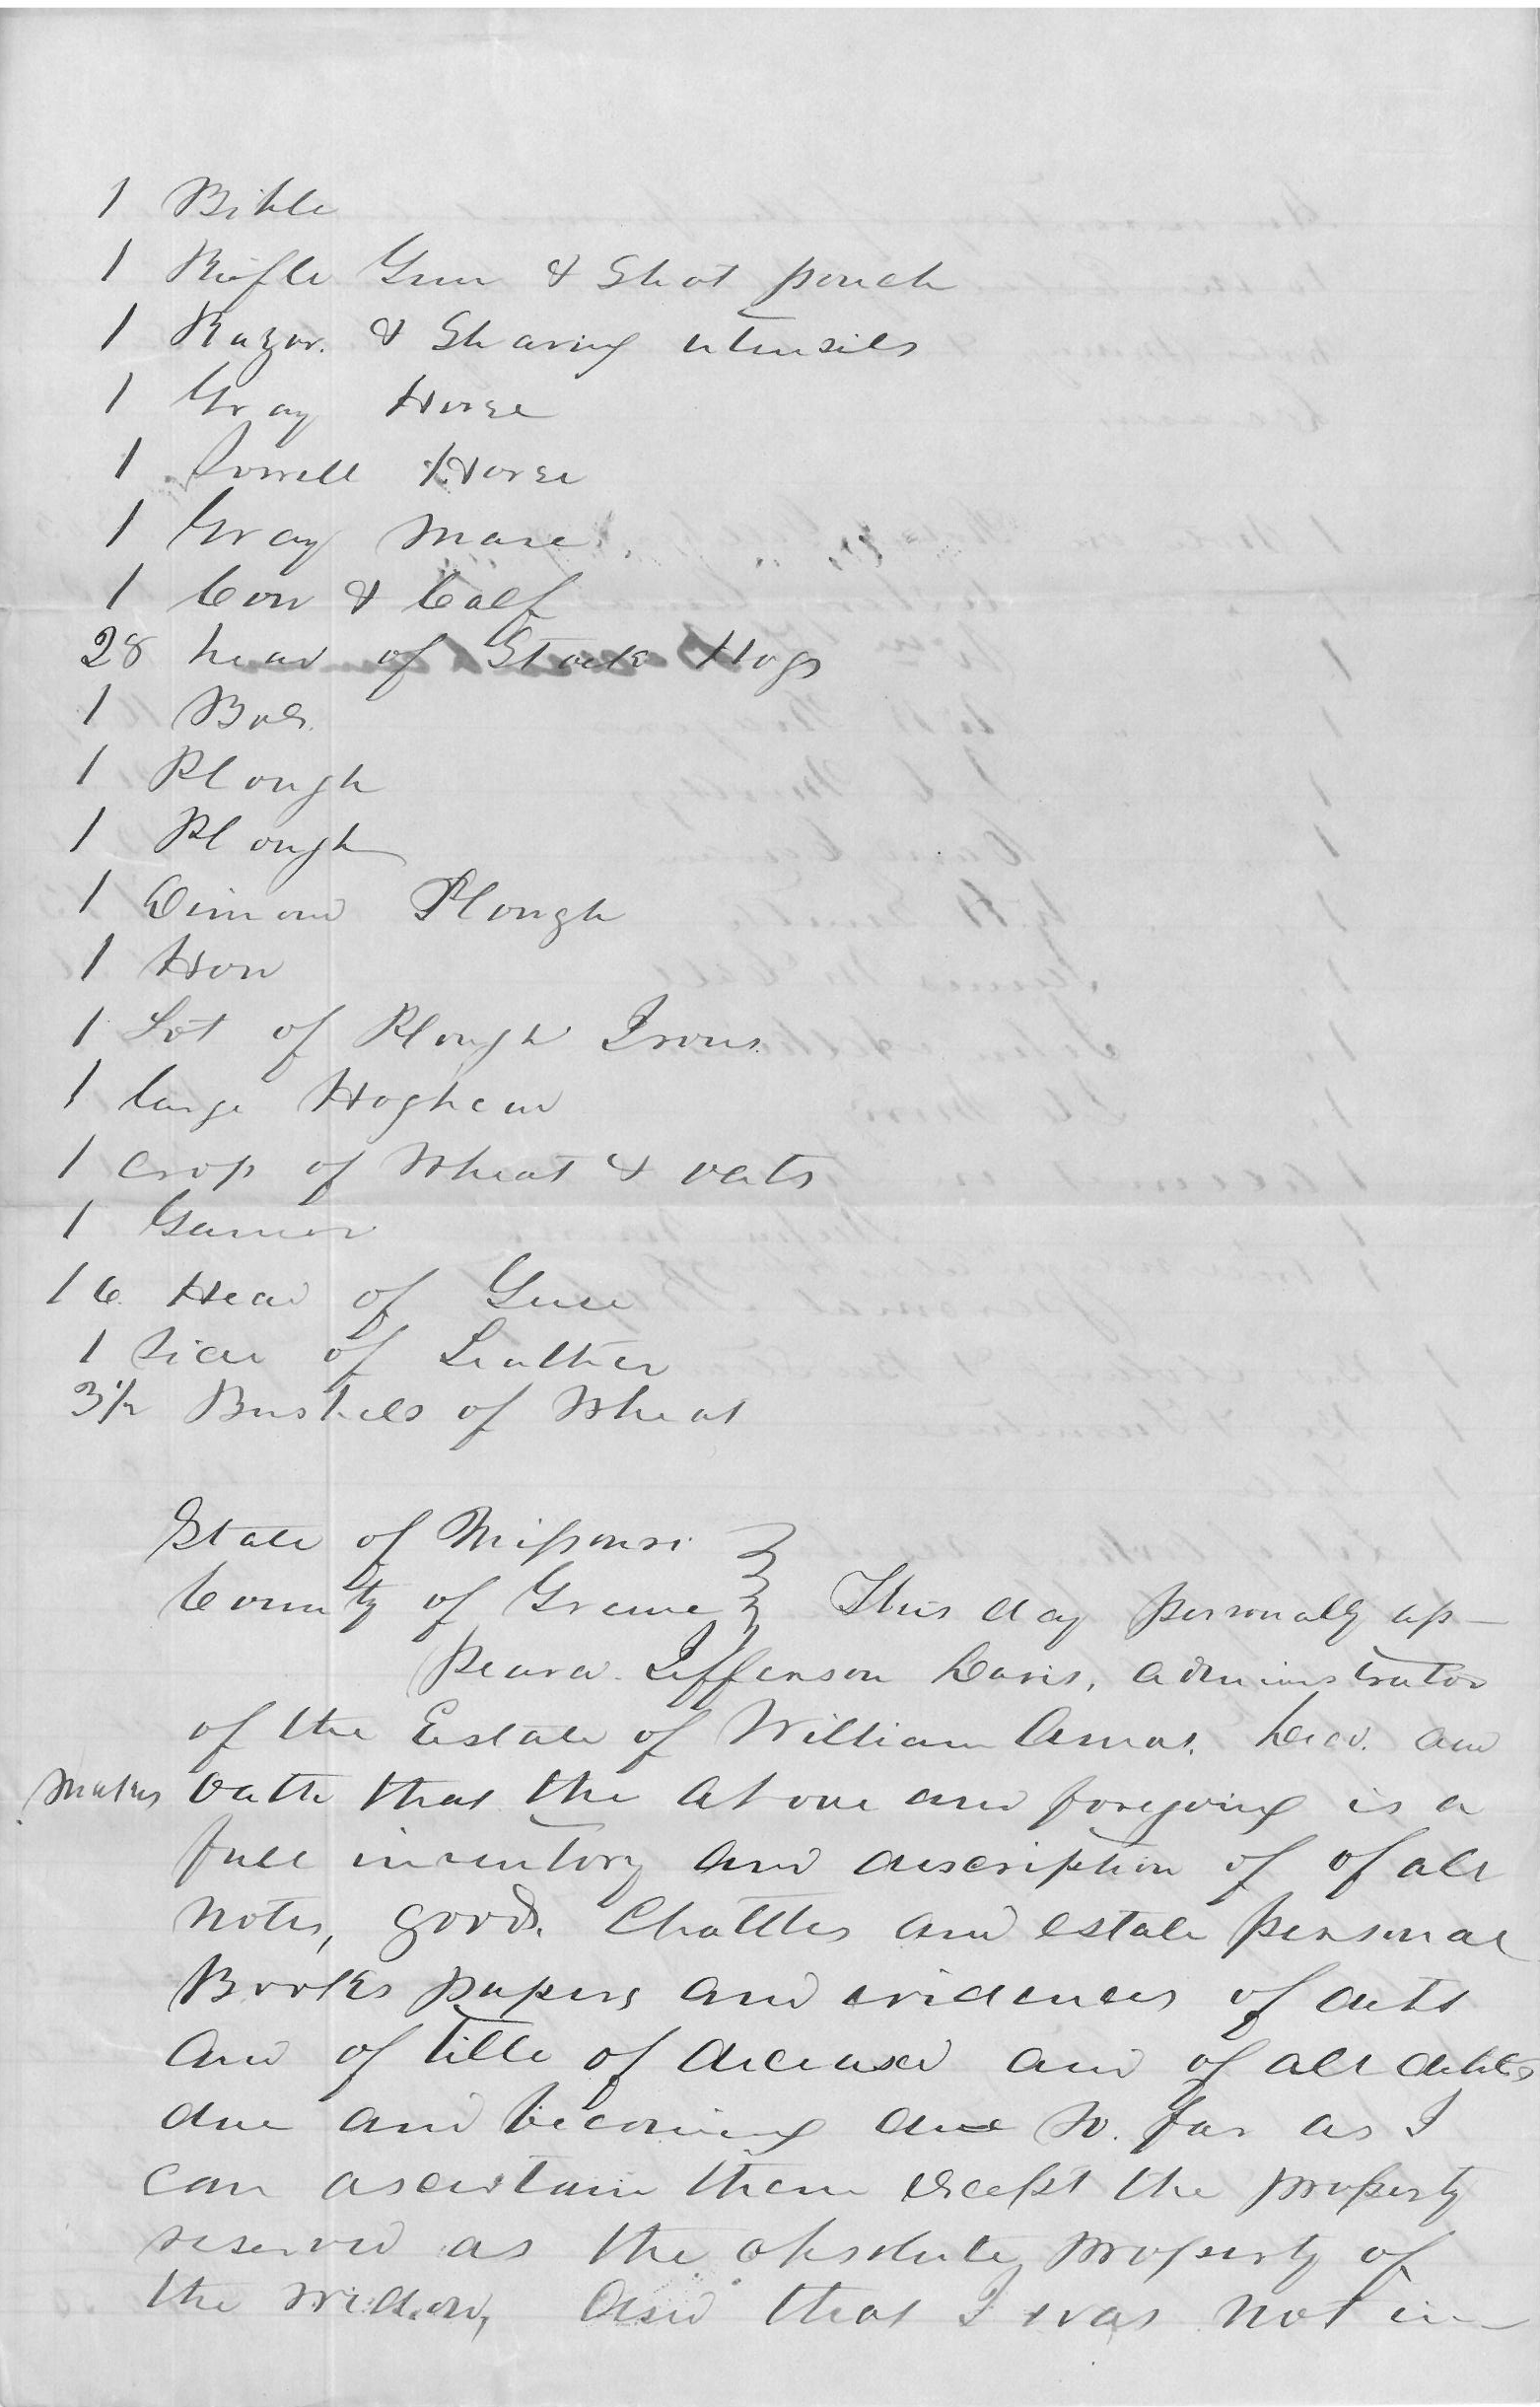 1 Bible
1 Rifle Gun & Shot pouch
1 Razor & Shaving utensils
1 Gray Horse
1 Sorrell Horse
1 Gray Mare
1 Cow & Calf
28 head of Stock Hogs
1
1 Plough
1 Plough
1 Dimond Plough
1
1 Lot of Plough Irons
1 large Hoghead
1 crop of Wheat & oats
1
16 Head of Geese
1 Side of Leather
3½ Bushels of Wheat
State of Missouri
County of Greene } This day personally ap-
peard Jefferson Davis, administrator
of the Estate of William Decd. and
makes oath that the above and foregoing is a
full inventory and discription of of all
notes, goods. Chattles and estate personal
Books papers and evidences of dets
and of title of deceased and of all debts
due and becoming due so far as I
can ascertain them except the property
reserved as the absolute property of
the widow, And that I was not in-